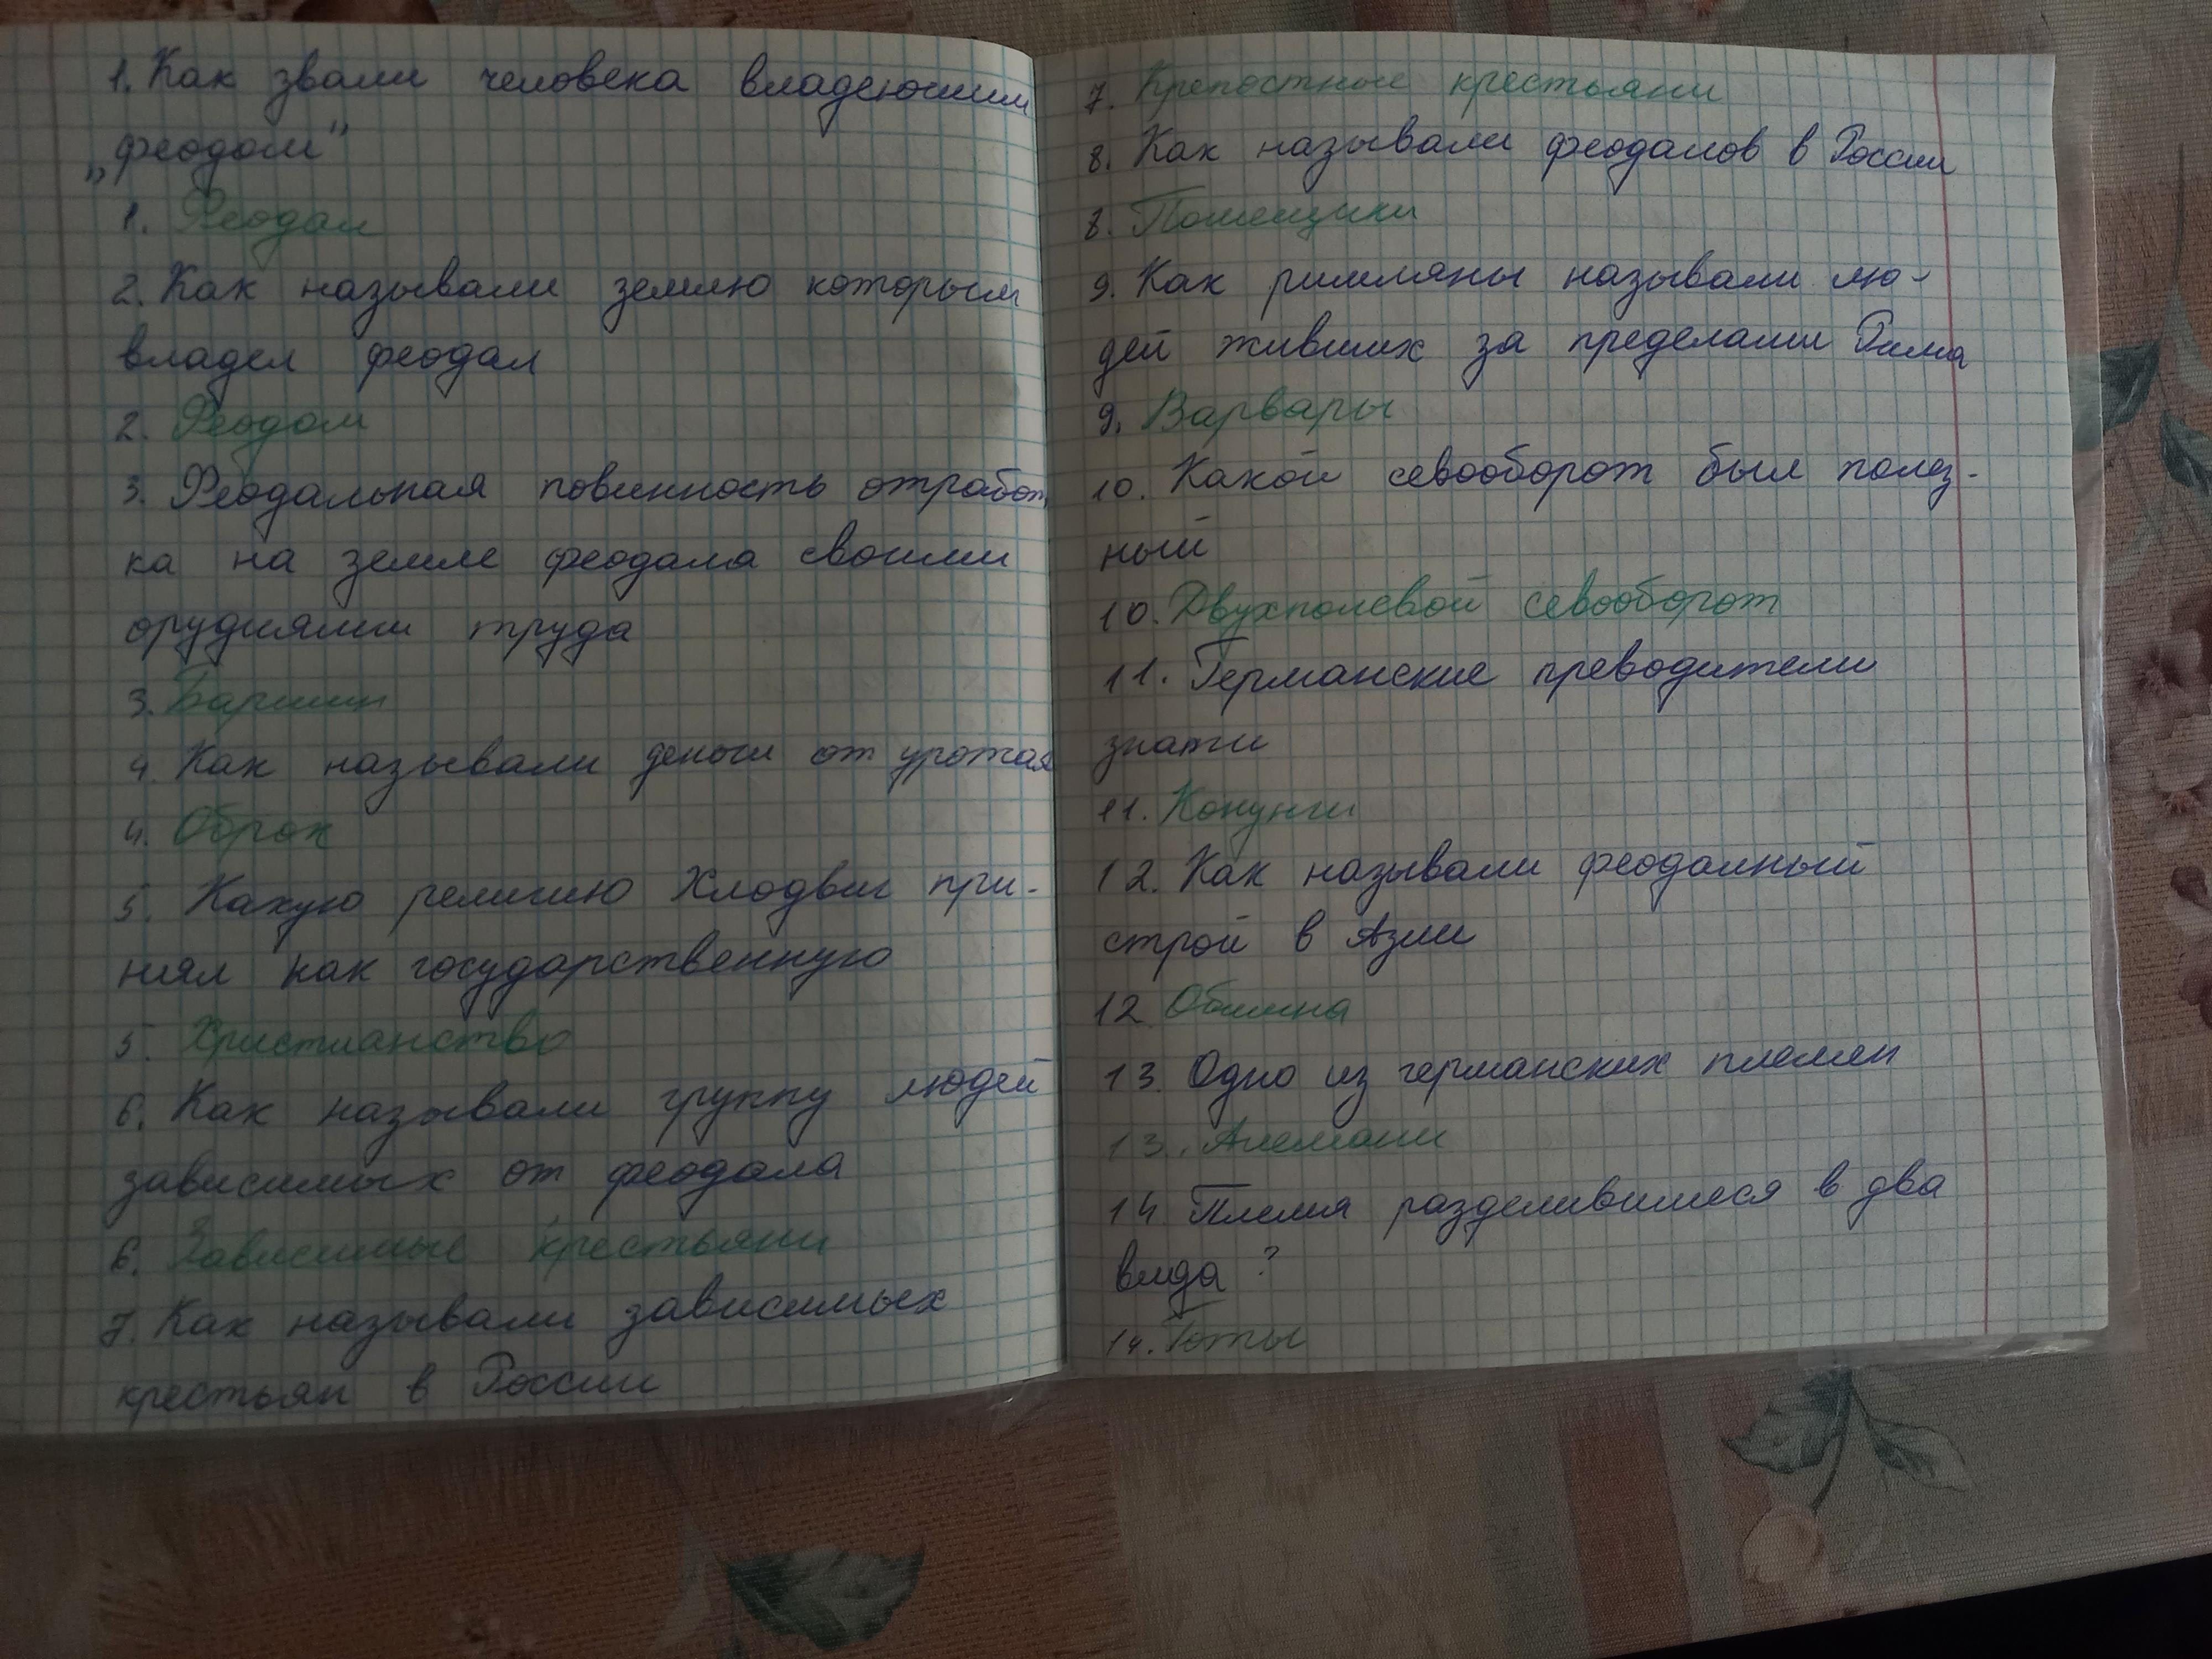 1. Как звали человека владеюшим
„феодом"
1. Феодал
2. Как называли землю которым
владел феодал
2. Феодом
3. Феодальная повинность отработ
ка на земле феодала своими
орудиями труда
3. Баршин
4. Как называли деньги от урожая
4. Оброк
5. Какую религию Хлодвиг при-
нял как государственную
5. Христианство
6. Как называли группу людей
зависимых от феодала
6. Зависимые крестьяни
7. Как называли зависимых
крестьян в России
7. Крепостные крестьяни
8. Как называли феодалов в России
8. Помещики
9. Как римляны называли лю-
дей живших за пределами Рима
9. Варвары
10. Какой севооборот был полез-
ный
10. Двухполевой севооборот
11. Германские преводители
знати
11. Конунги
12. Как называли феодалный
строй в Азии
12 Обшина
13 Одно из германских племен
13. Алемани
14 Племя разделившиеся в два
вида ?
14. Готы